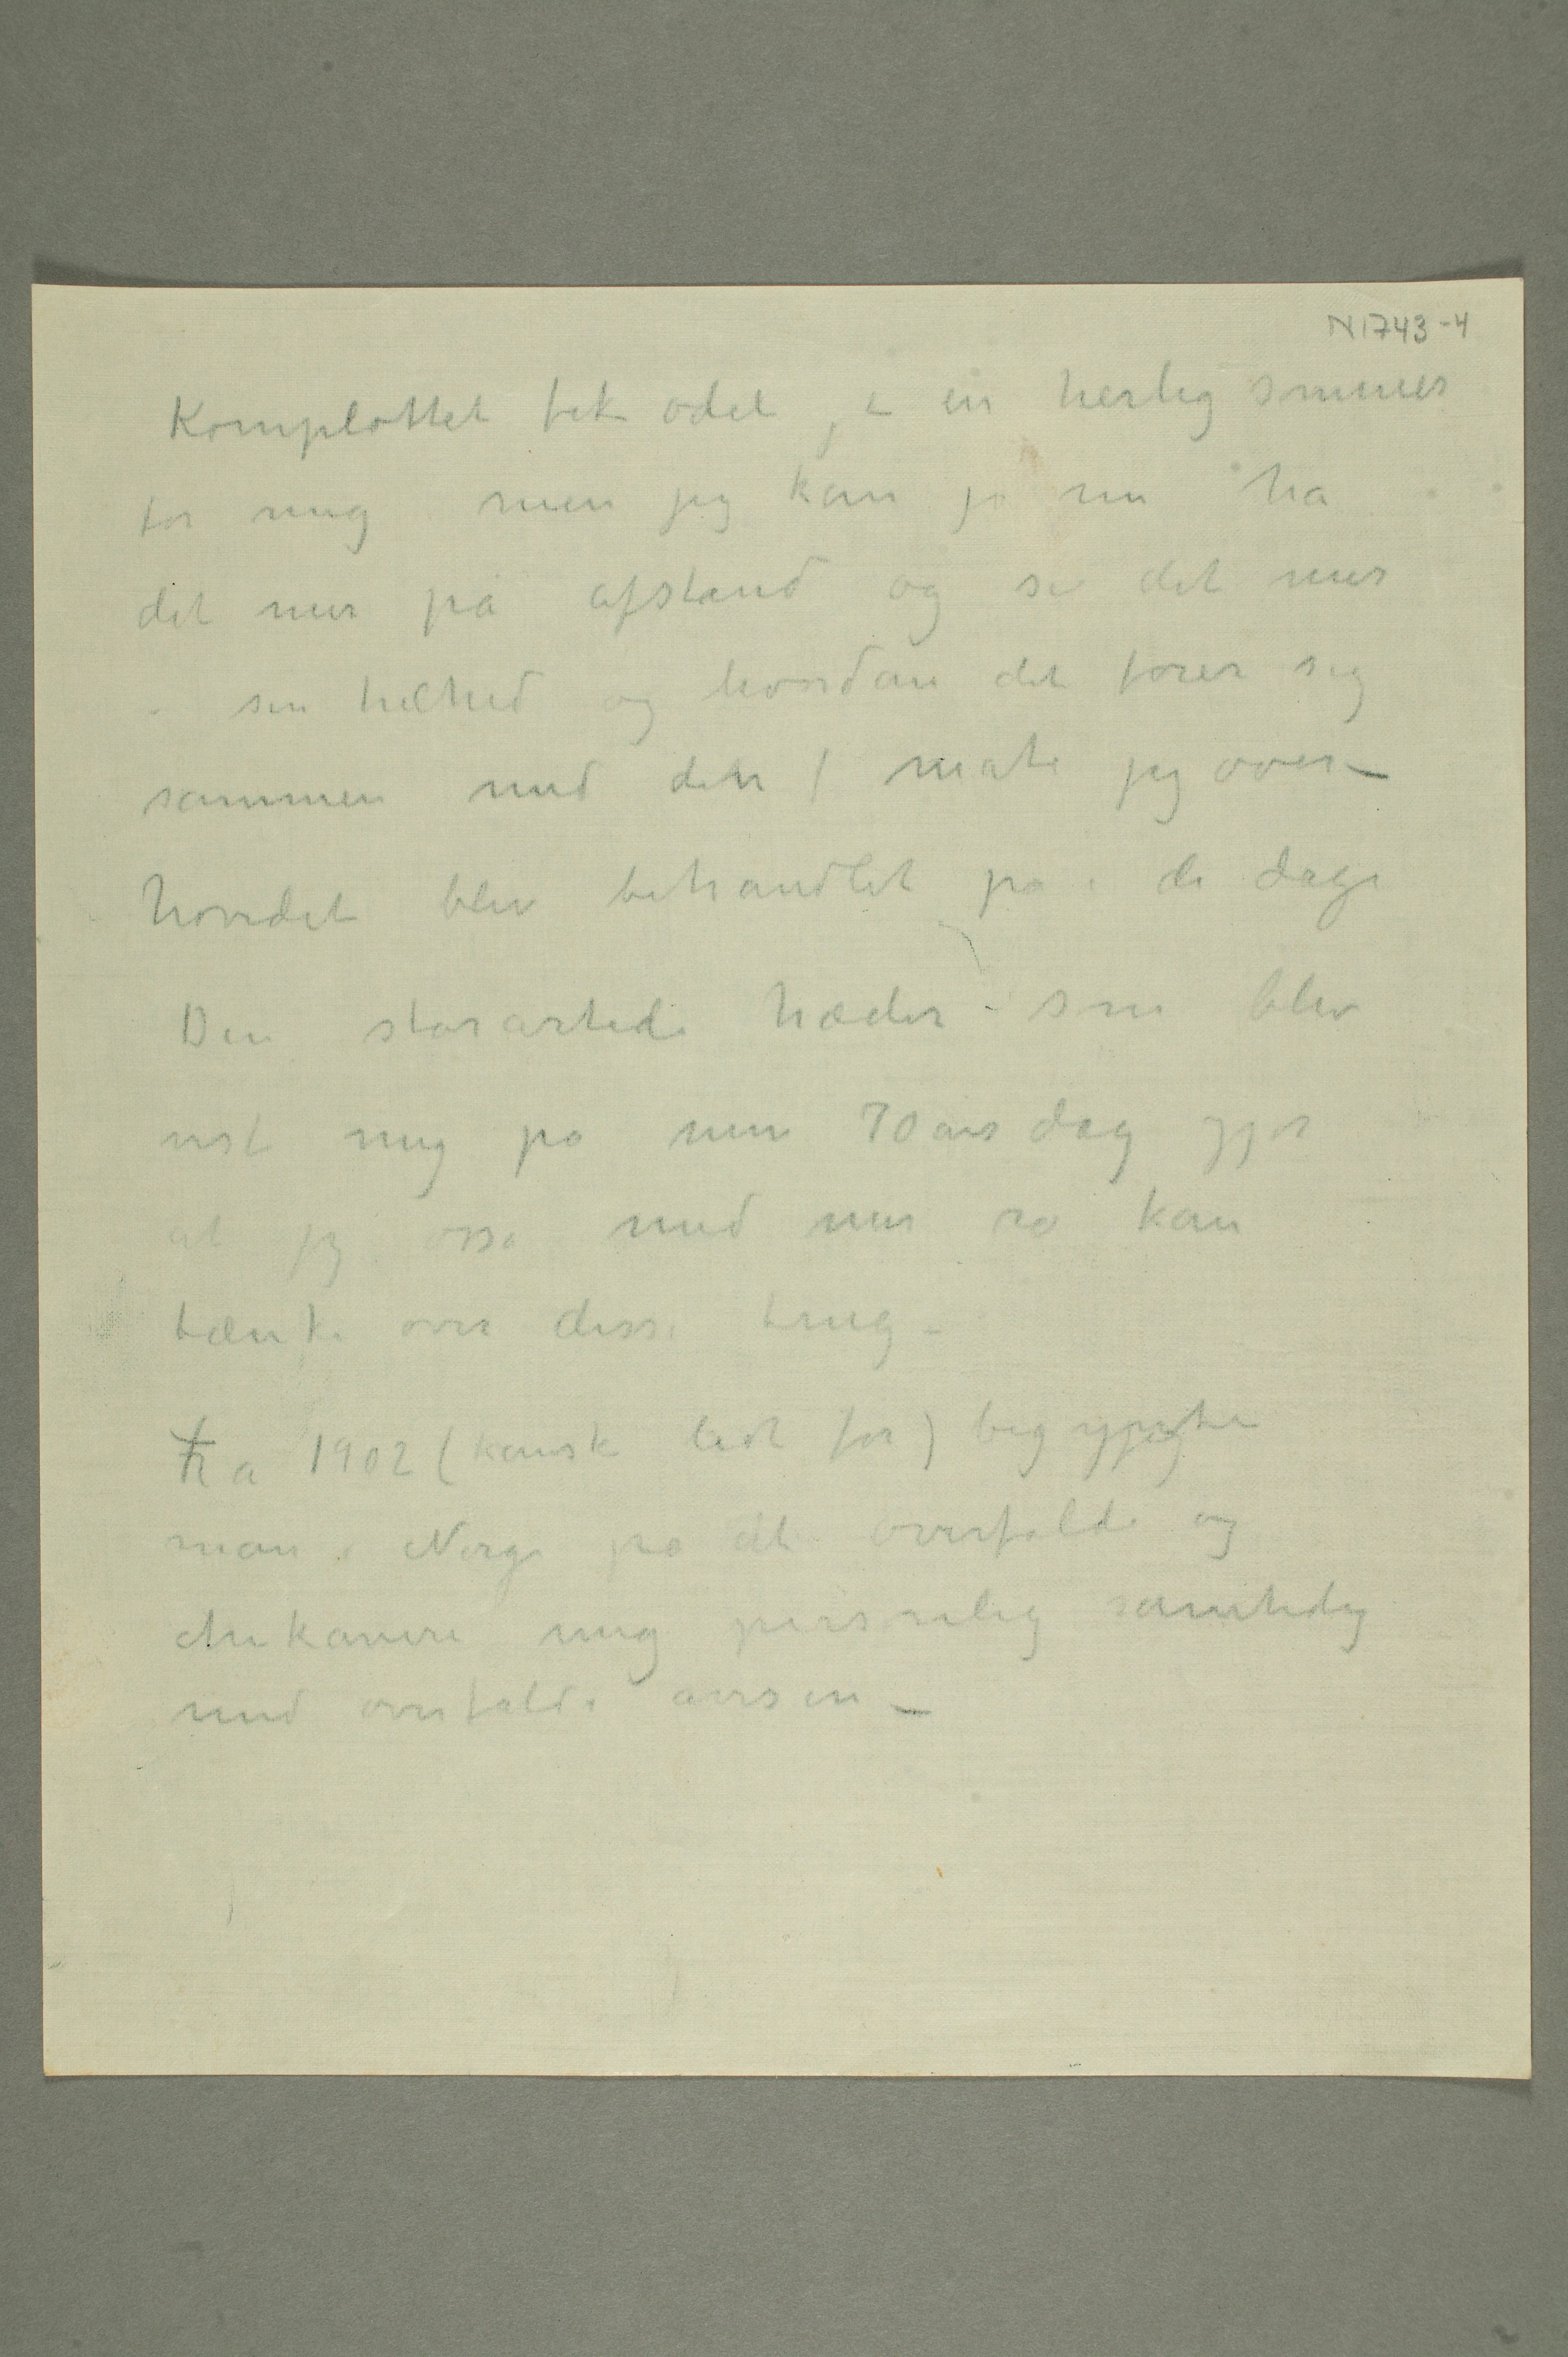 N 1743-4
Komplottet fik ødet, en herlig sommer
for mig men jeg kan jo nu ha
det mer på afstand og se det mer
i sin helhed og hvordan det føier sig
sammen med den måte jeg over–
hovedet blev behandlet på i de dage
Den storartede hæder som blev
vist mig på min 70 års dag gjør
at jeg osså med mer ro kan
tænke over disse ting –
Fra 1902 (kanske lidt før) begynte
man i Norge på at overfalde og
chikanere mig personlig samtidig
med overfald i avisen –